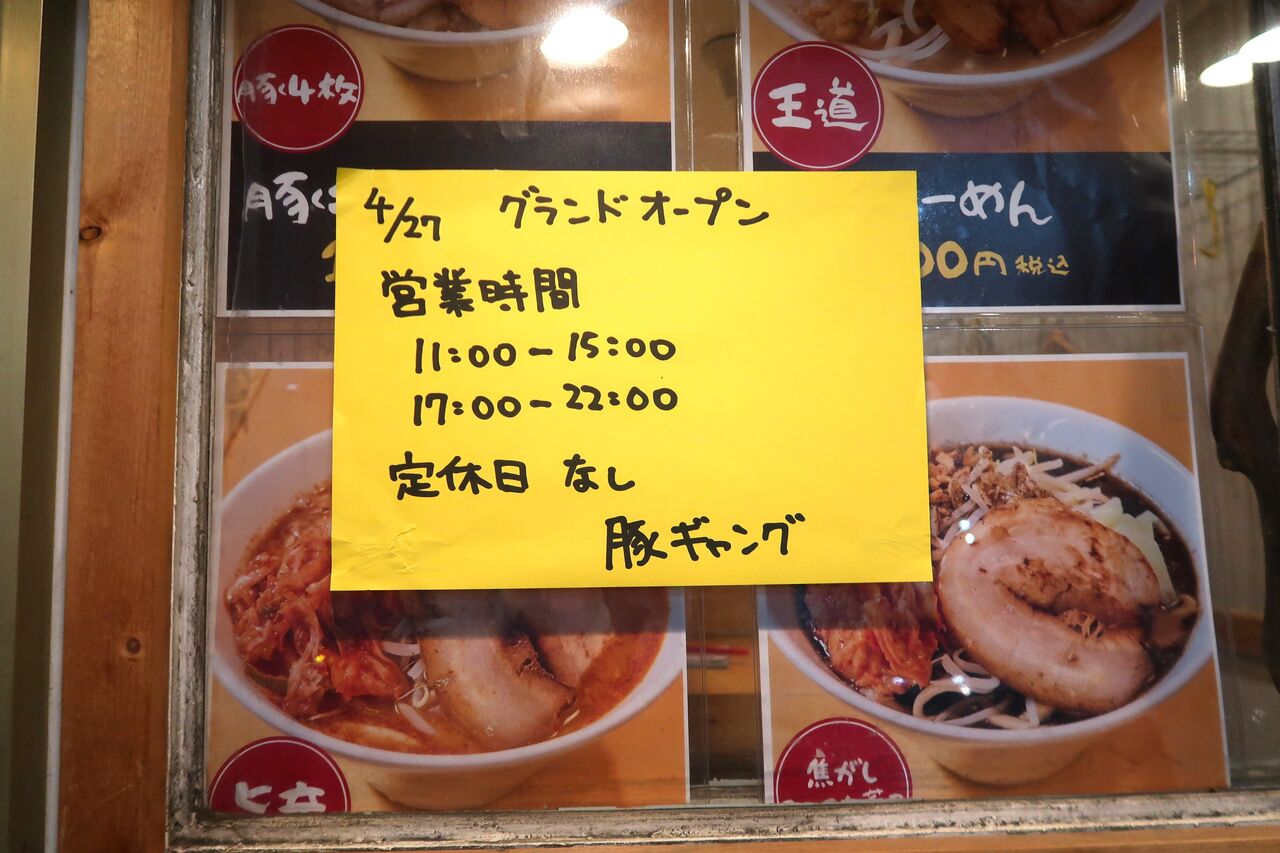 豚4枚
王道
豚
ーめん
00円 税込
4/27 グランドオープン
営業時間
11:00-15:00
17:00-22:00
定休日 なし
豚ギャング
旨辛
焦がし